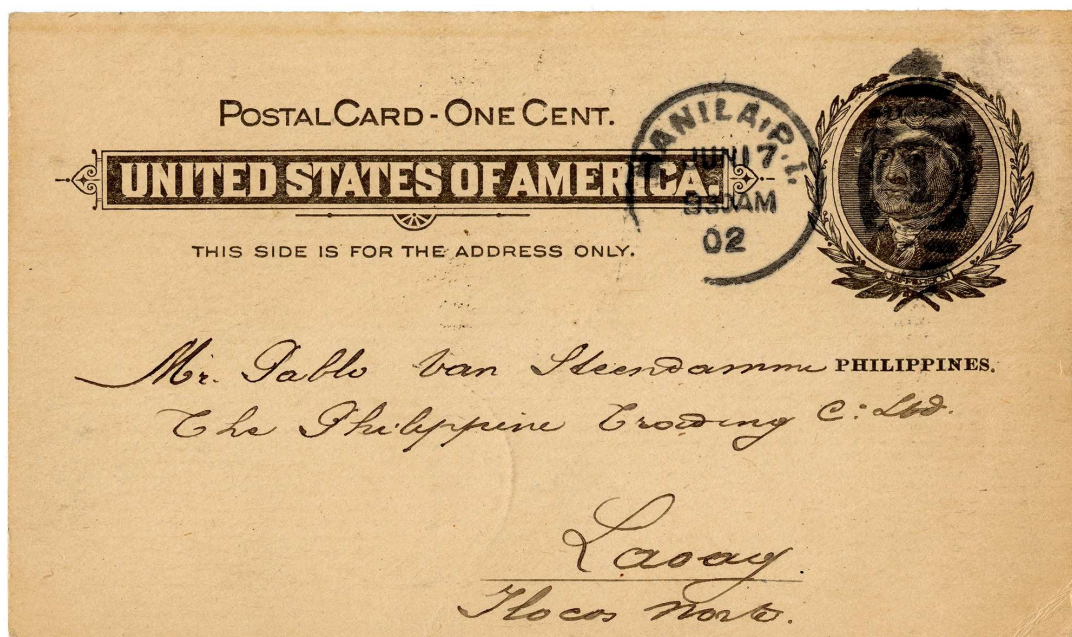 POSTAL CARD - ONE CENT.
UNITED STATES OF AMERICA.
THIS SIDE IS FOR THE ADDRESS ONLY.
MANILA, P.I.
JUN 17
930AM
02
1
JEFFERSON
Mr. Pablo Van Steendamme PHILIPPINES.
The Philippine Trading C: Ltd.
Laoag
Ilocos Norte.